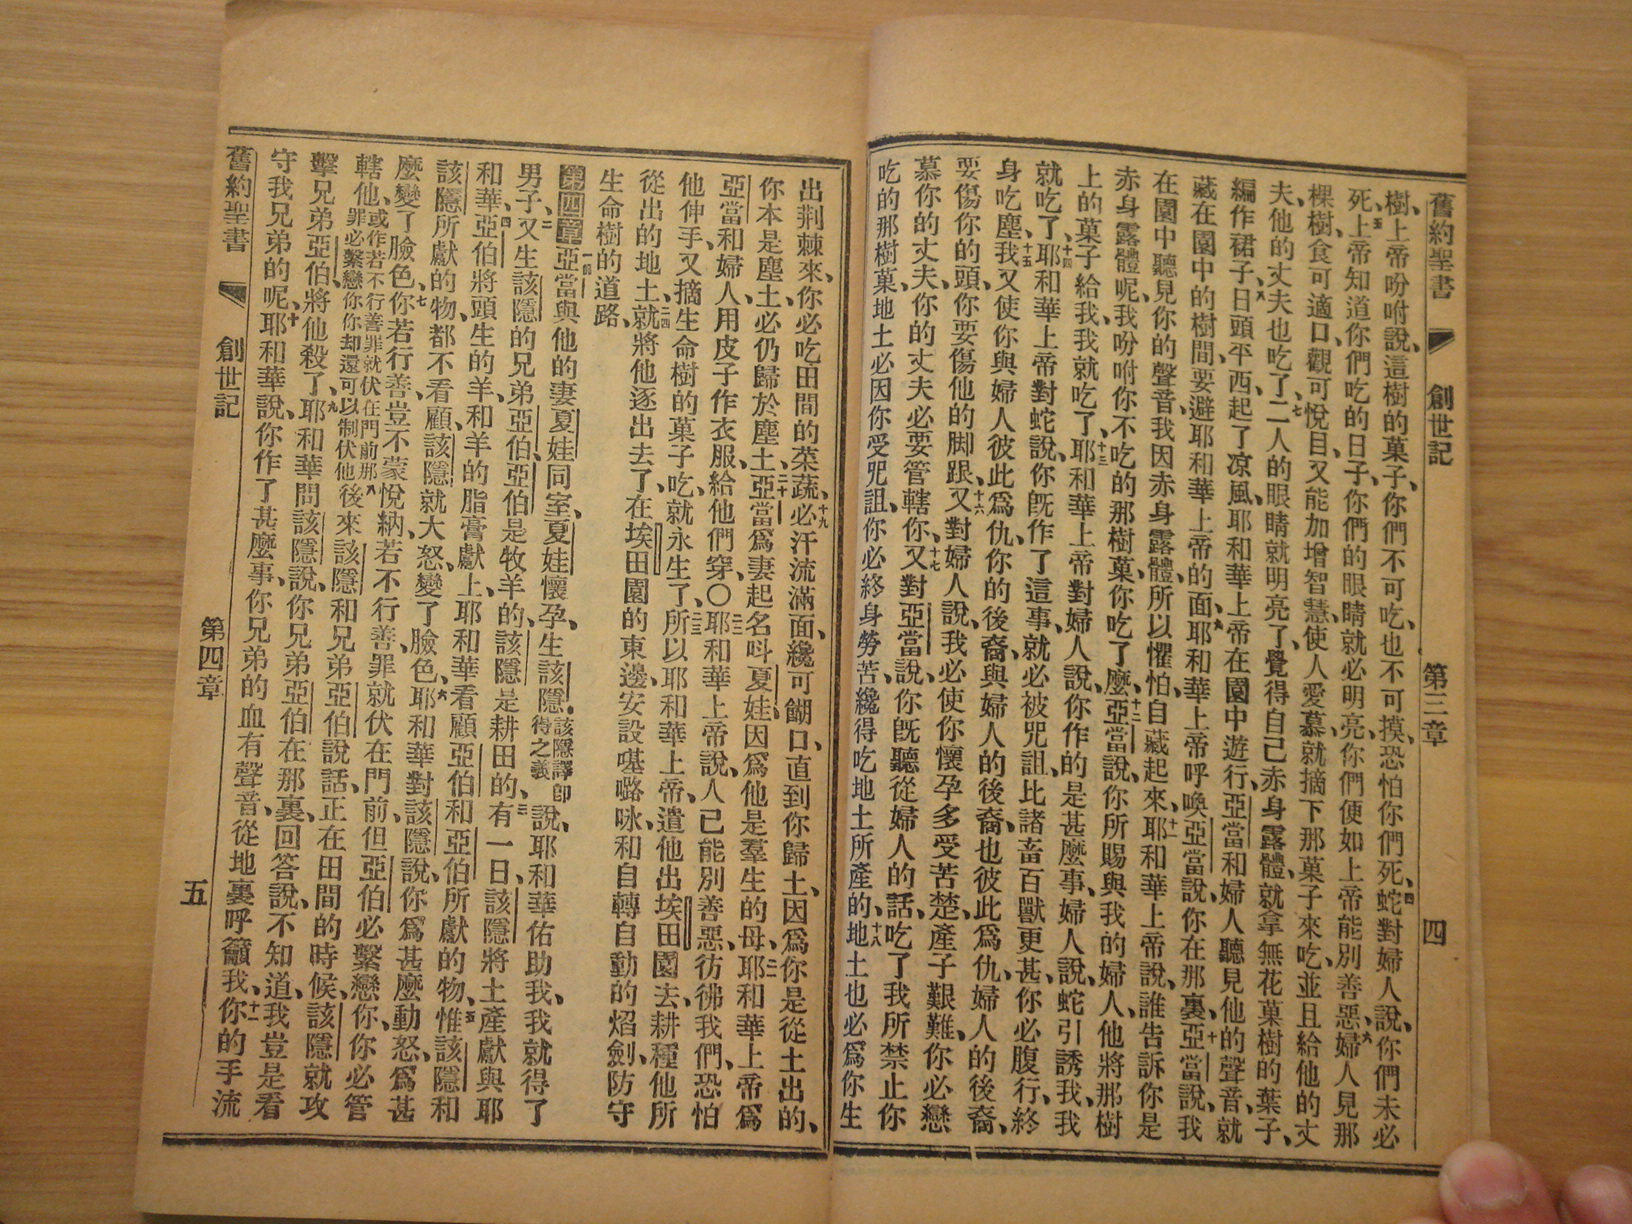 舊約聖書 創世記 第三章 四
樹、上帝吩咐說、這樹的菓子、你們不可吃、也不可摸、恐怕你們死、四蛇對婦人說、你們未必
死、五上帝知道你們吃的日子、你們的眼睛就必明亮、你們便如上帝能別善惡、六婦人見那
樹、食可適口、觀可悅目、又能加增智慧、使人愛慕、就摘下那菓子來吃、並且給他的丈
夫、他的丈夫也吃了、七二人的眼睛就明亮了、覺得自己赤身露體、就拿無花菓樹的葉子、
編作裙子、八日頭平西、起了凉風、耶和華上帝在園中遊行、亞當和婦人聽見他的聲音、就
藏在園中的樹間、要避耶和華上帝的面、九耶和華上帝呼喚亞當說、你在那裏、十亞當說、我
在園中聽見你的聲音、我因赤身露體、所以懼怕、自藏起來、十一耶和華上帝說、誰告訴你是
赤身露體呢、我吩咐你不吃的那樹菓、你吃了麼、十二亞當說、你所賜與我的婦人、他將那樹
上的菓子給我、我就吃了、十三耶和華上帝對婦人說、你作的是甚麼事、婦人說、蛇引誘我、我
就吃了、十四耶和華上帝對蛇說、你旣作了這事、就必被咒詛、比諸畜百獸更甚、你必腹行、終
身吃塵、十五我又使你與婦人彼此爲仇、你的後裔與婦人的後裔、也彼此爲仇、婦人的後裔、
要傷你的頭、你要傷他的脚跟、十六又對婦人說、我必使你懷孕多受苦楚、產子艱難、你必戀
慕你的丈夫、你的丈夫必要管轄你、十七又對亞當說、你旣聽從婦人的話、吃了我所禁止你
吃的那樹菓、地土必因你受咒詛、你必終身勞苦、纔得吃地土所產的、十八地土也必爲你生
出荆棘來、你必吃田間的菜蔬、十九必汗流滿面、纔可餬口、直到你歸土、因爲你是從土出的、
你本是塵土、必仍歸於塵土、二十亞當爲妻起名呌夏娃、因爲他是羣生的母、二一耶和華上帝爲
亞當和婦人、用皮子作衣服、給他們穿、〇二二耶和華上帝說、人已能別善惡、彷彿我們、恐怕
他伸手、又摘生命樹的菓子吃、就永生了、二三所以耶和華上帝、遣他出埃田園去、耕種他所
從出的地土、二四就將他逐出去了、在埃田園的東邊、安設𠼻𡀔咏、和自轉自動的熖劍、防守
生命樹的道路、
第四章 一節亞當與他的妻夏娃同室、夏娃懷孕、生該隱、該隱譯卽得之義說、耶和華佑助我、我就得了
男子、二又生該隱的兄弟亞伯、亞伯是牧羊的、該隱是耕田的、三有一日、該隱將土產獻與耶
和華、四亞伯將頭生的羊、和羊的脂膏獻上、耶和華看顧亞伯和亞伯所獻的物、五惟該隱和
該隱所獻的物、都不看顧、該隱就大怒、變了臉色、六耶和華對該隱說、你爲甚麼動怒、爲甚
麼變了臉色、七你若行善、豈不蒙悅納、若不行善、罪就伏在門前、但亞伯必繫戀你、你必管
轄他、或作若不行善罪就伏在門前那罪必繫戀你你却還可以制伏他八後來該隱和兄弟亞伯說話、正在田間的時候、該隱就攻
擊兄弟亞伯、將他殺了、九耶和華問該隱說、你兄弟亞伯在那裏、回答說、不知道、我豈是看
守我兄弟的呢、十耶和華說、你作了甚麼事、你兄弟的血有聲音、從地裏呼籲我、十一你的手流
舊約聖書 創世記 第四章 五